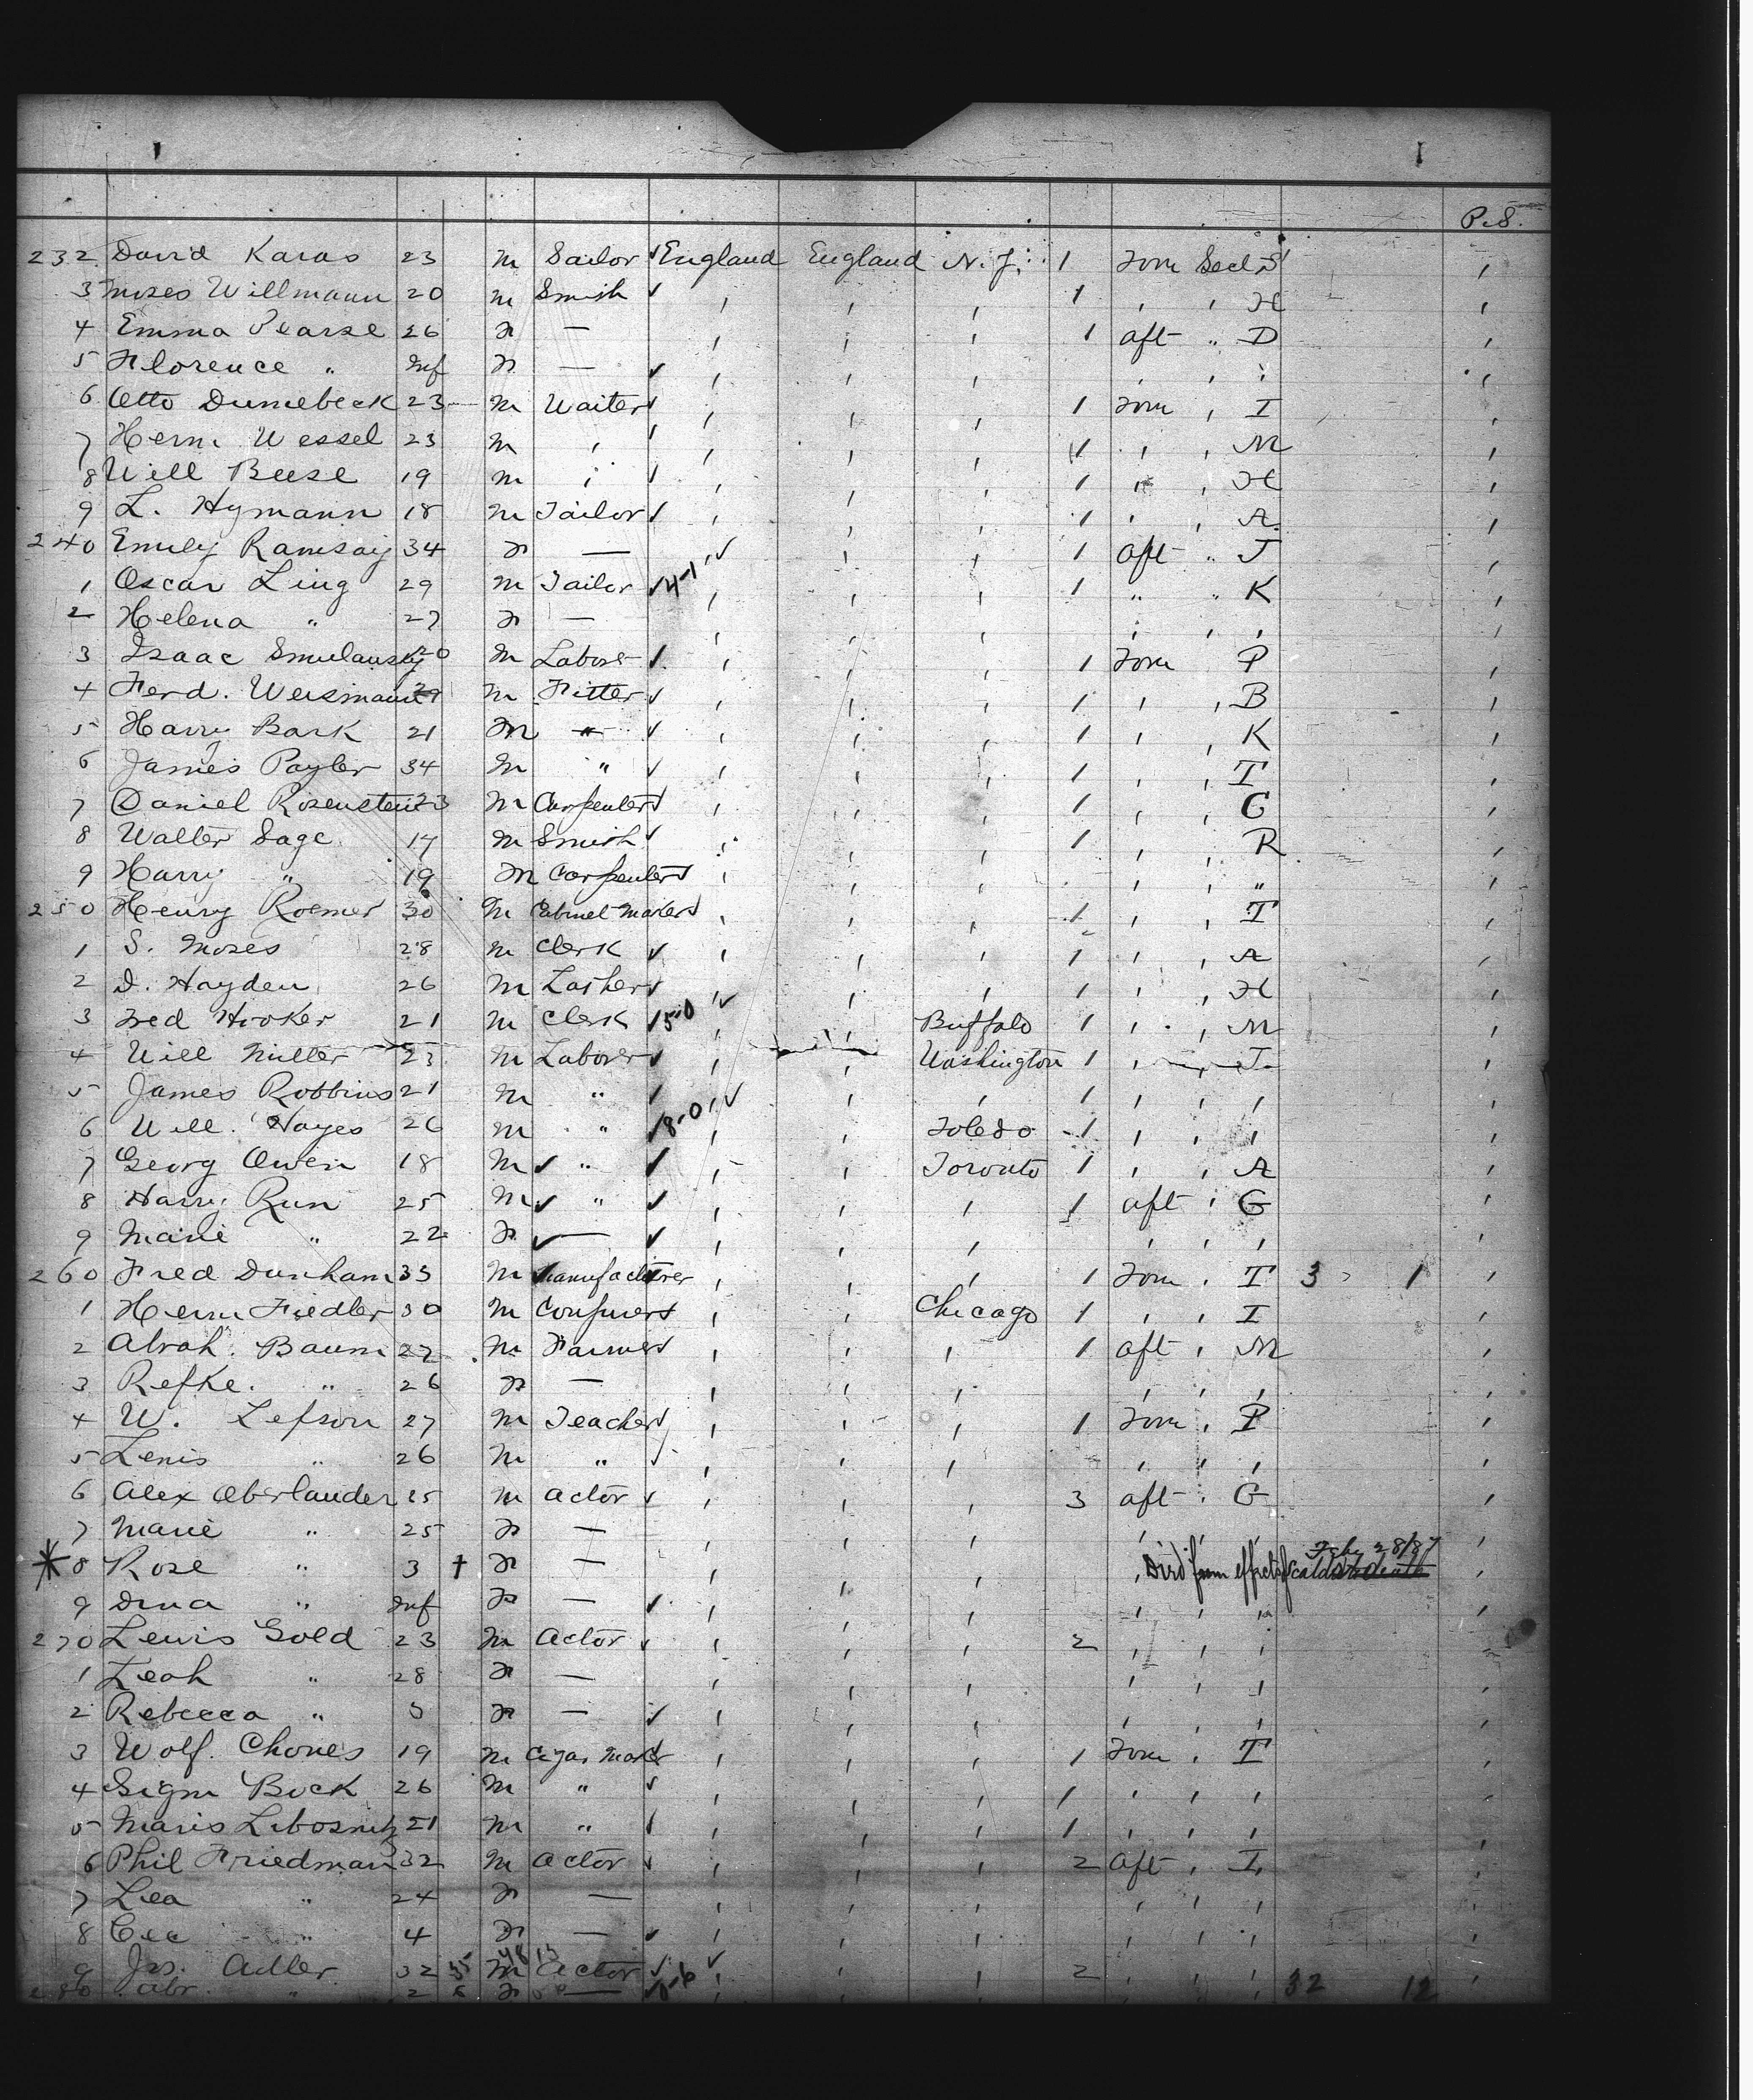 P.S.
232 David Karas 23 m Sailor England England N.Y. 1 Forw Sect S
3 Moses Willmann 20 m Smith ✓ , , , 1 , , H ,
4 Emma Pearse 26 F — , , , 1 aft " D ,
5 Florence " Inf F — ✓ , , , , , , ,
6 Otto Dumebeck 23 m Waiter ✓ , , , 1 Forw , I ,
7 Herm. Wessel 23 m , ✓ , , , 1 , , M ,
8 Will Beese 19 m , ✓ , , , 1 , , H ,
9 L. Hymann 18 m Tailor ✓ , , , 1 , , A ,
240 Emily Ramsay 34 F — , , , 1 aft " J ,
1 Oscar Ling 29 m Tailor ✓ 4-1 ✓ , , , 1 " " K ,
2 Helena " 27 F — , , , , , , ,
3 Isaac Smulansky 20 m Labore ✓ , , 1 Forw P ,
4 Ferd. Weismann 29 m Fitter ✓ , , , 1 , , B ,
5 Harry Bark 21 m " ✓ , , , 1 , , K ,
6 James Payler 34 m " ✓ , , , 1 , , T ,
7 Daniel Rosenstein 23 m Carpenter ✓ , , , 1 , , C ,
8 Walter Sage 17 m Smith ✓ , , , 1 , , R ,
9 Harry " 19 m Carpenter ✓ , , , , , " ,
250 Henry Roemer 30 m Cabinet Maker ✓ , , , 1 , , T ,
1 S. Moses 28 m Clerk ✓ , , , 1 , , A ,
2 D. Hayden 26 m Lasher ✓ , , , 1 , , H ,
3 Fred Hooker 21 m Clerk 15-0 ✓ , , Buffalo 1 , , M ,
4 Will Miller 23 m Laborer ✓ , , Washington 1 , , J ,
5 James Robbins 21 m " ✓ , , , 1 , , , ,
6 Will. Hayes 26 m " 18-0 ✓ , , Toledo 1 , , , ,
7 Georg Owen 18 m ✓ " ✓ , , Toronto 1 , , A ,
8 Harry Run 25 m ✓ " ✓ , , , 1 aft , G ,
9 Marie " 22 F ✓ — ✓ , , , , , , ,
260 Fred Dunham 35 m Manufacturer , , , 1 Forw , T 3 1 ,
1 Herm Fiedler 30 m , , Chicago 1 , , I ,
2 Abrah. Baum 27 m Farmer ✓ , , , 1 aft , M ,
3 Refke. " 26 F — , , , , , , ,
4 W. Lefson 27 m Teacher ✓ , , , 1 Forw , P ,
5 Lenis " 26 m " ✓ , , , , , , ,
6 Alex Oberlander 25 m Actor ✓ , , , 3 aft , G ,
7 Marie " 25 F — , , , , , , ,
* 8 Rose " 3 † F — , , , , Died from effects of Scalds Feby 28/87 ,
9 Dina " Inf F — ✓ , , , , , , ,
270 Lewis Gold 23 m Actor ✓ , , , 2 , , , ,
1 Leah " 28 F — , , , , , , ,
2 Rebecca " 3 F — ✓ , , , , , , ,
3 Wolf. Chones 19 m Cigar Maker , , , 1 Forw , T ,
4 Sigm Bock 26 m " ✓ , , , 1 , , , ,
5 Maris 21 m " ✓ , , , 1 , , , ,
6 Phil Friedman 32 m Actor ✓ , , , 2 aft , I ,
7 Lea " 24 F — , , , , , , ,
8 " 4 F — ✓ , , , , , , ,
9 Adler 32 m Actor ✓ ✓ , , , 2 , , , ,
280 Abr. " 2 F — , , , , , , 32 12 ,